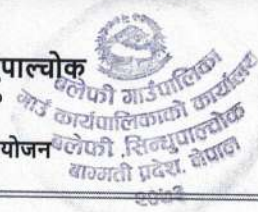 पाल्चोक
बलेफी गाउँपालिका
गाउँ कार्यपालिकाको कार्यालय
योजन
बलेफी ,सिन्धुपाल्चोक
बागमती प्रदेश, नेपाल
२०७३